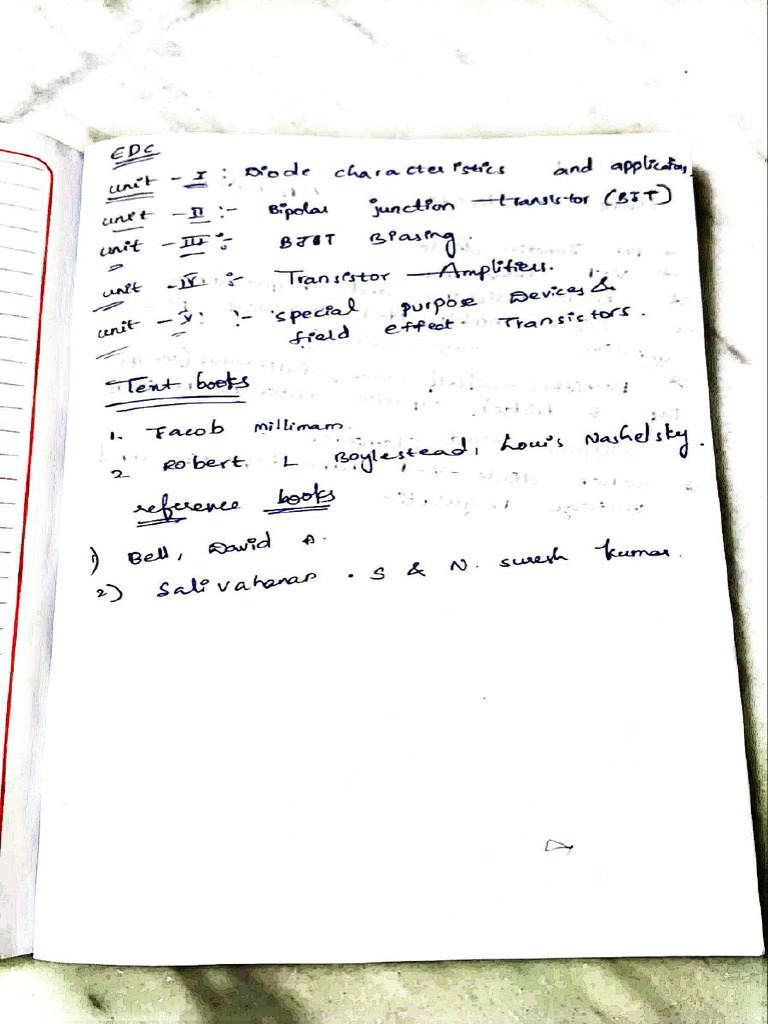 EDC
unit - I : Diode characteristics and applications
unit - II :- Bipolar junction transistor (BJT)
unit - III :- BJT Biasing.
unit - IV :- Transistor Amplifiers.
unit - V :- special purpose Devices &
field effect Transistors.
Text books
1. Jacob Millimam
2 Robert L Boylestead, Louis Nashelsky.
reference books
1) Bell, David A.
2) Salivahanan . S & N. Suresh kumar.